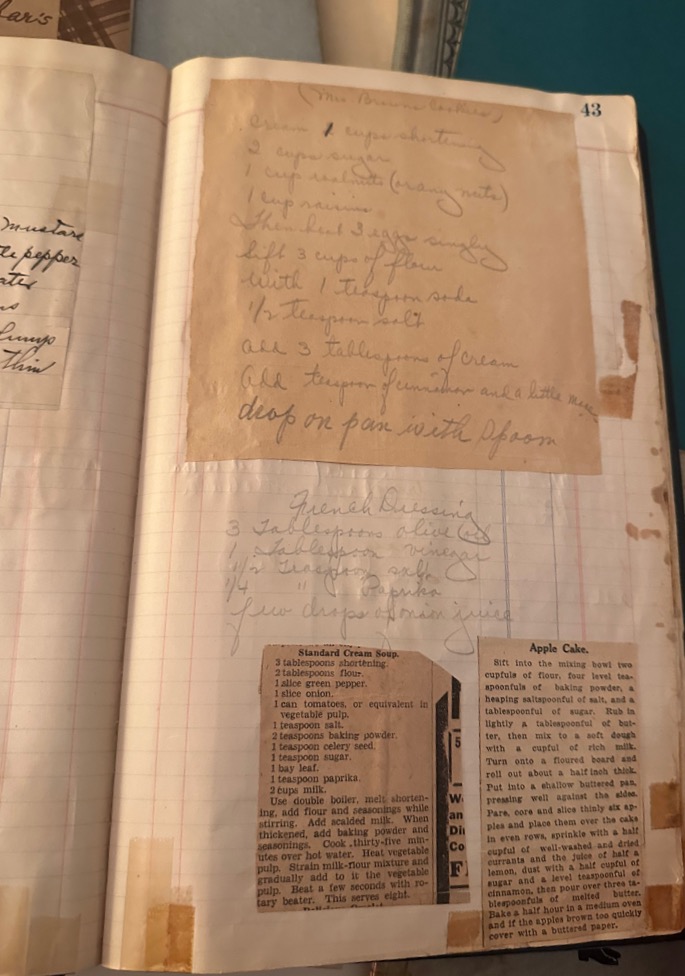 ar's
mustard
pepper
Lumps
thin
43
(Mrs Browns Cookies)
Cream 1 cups shortening
2 cups sugar
1 cup walnuts (or any nuts)
1 cup raisins
Then beat 3 eggs singly
Sift 3 cups of flour
with 1 teaspoon soda
1/2 teaspoon salt
add 3 tablespoons of cream
add teaspoon of cinnamon and a little
drop on pan with spoon
French Dressing
3 Tablespoons olive oil
1 Tablespoon vinegar
1/2 Teaspoon salt
1/4 " Paprika
few drops onion juice
Standard Cream Soup.
3 tablespoons shortening.
2 tablespoons flour.
1 slice green pepper.
1 slice onion.
1 can tomatoes, or equivalent in
vegetable pulp.
1 teaspoon salt.
2 teaspoons baking powder.
1 teaspoon celery seed.
1 teaspoon sugar.
1 bay leaf.
1 teaspoon paprika.
2 cups milk.
Use double boiler, melt shorten-
ing, add flour and seasonings while
stirring. Add scalded milk. When
thickened, add baking powder and
seasonings. Cook thirty-five min-
utes over hot water. Heat vegetable
pulp. Strain milk-flour mixture and
gradually add to it the vegetable
pulp. Beat a few seconds with ro-
tary beater. This serves eight.
5
W
an
Di
Co
F
Apple Cake.
Sift into the mixing bowl two
cupfuls of flour, four level tea-
spoonfuls of baking powder, a
heaping saltspoonful of salt, and a
tablespoonful of sugar. Rub in
lightly a tablespoonful of but-
ter, then mix to a soft dough
with a cupful of rich milk.
Turn onto a floured board and
roll out about a half inch thick.
Put into a shallow buttered pan,
pressing well against the sides.
Pare, core and slice thinly six ap-
ples and place them over the cake
in even rows, sprinkle with a half
cupful of well-washed and dried
currants and the juice of half a
lemon, dust with a half cupful of
sugar and a level teaspoonful of
cinnamon, then pour over three ta-
blespoonfuls of melted butter.
Bake a half hour in a medium oven
and if the apples brown too quickly
cover with a buttered paper.